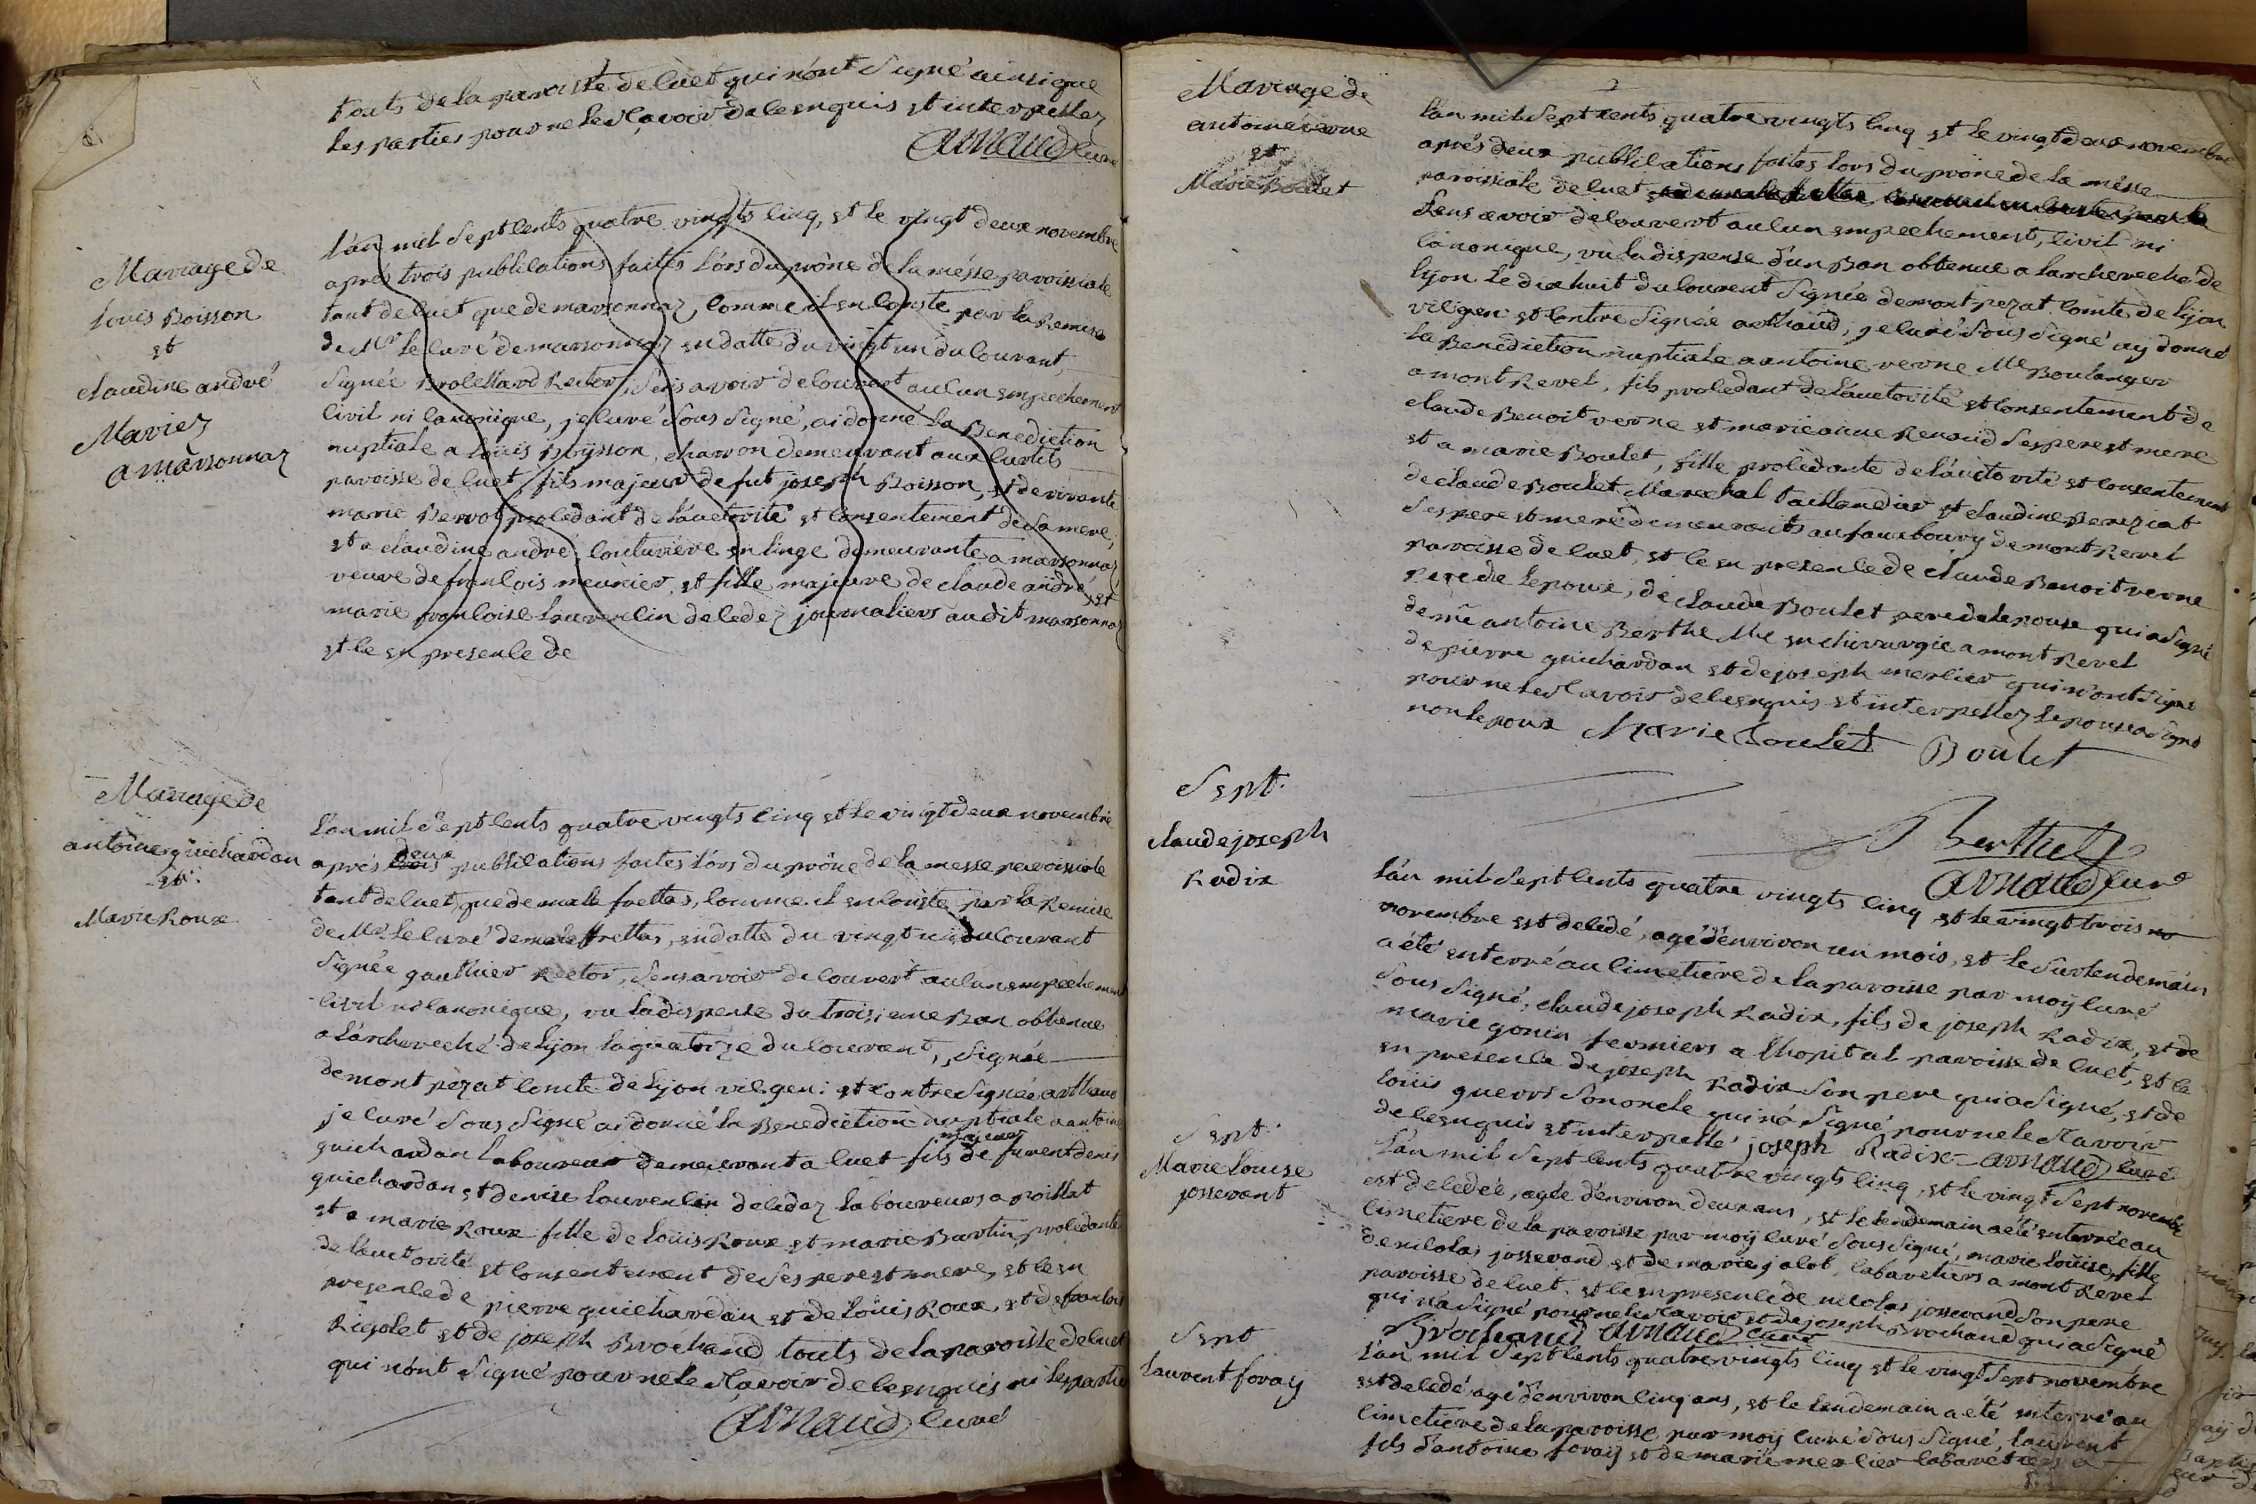 touts de la paroisse de Cuet qui n'ont signé ainsi que
les parties pour ne le sçavoir de ce enquis et interpellez
Arnaud curé
Mariage de
Louis Boisson
et
claudine andré
Mariez
a marsonnaz
L'an mil sept cents quatre vingts cinq, et le vingt deux novembre
après trois publications faites lors du prône de la mésse paroissiale
tant de Cuet que de marsonnaz, comme il en conste par la Remise
de Mr le curé de marsonnaz en datte du vingt un du courant
signée Brolliard Rector, sens avoir decouvert aucun empechement
civil ni canonique, je curé sous signé, ai donné la Benediction
nuptiale a Loüis Boysson, charon demeurant aux curtils
paroisse de Cuet, fils majeur de fut joseph Boisson, et de vivante
marie Bervot procédant de l'autorité et consentement de sa mere,
et a claudine andré, couturiere en linge demeurante a marsonnaz
veuve de françois meunier, et fille majeure de claude andré, et
marie françoise Lauvenlin decedez journaliers audit marsonnaz
et ce en presence de
Mariage de
antoine guichardan
et
Marie Roux
L'an mil sept cents quatre vingts cinq et le vingt deux novembre
après deux publications faites lors du prône de la messe paroissiale
tant de Cuet que de malafrettas, comme il en conste par la Remise
de Mr. le curé de malafrettas, en datte du vingt un du courant
signée gauthier Rector, sens avoir decouvert aucun empechement
civil ni canonique, vu la dispense du troisieme Ban obtenue
a L'archeveché de Lyon la quatorze du courant, signée
de montpezat comte de Lyon vic. gen: et contresignée arthaud
je curé sous signé ai donné la Benediction nuptiale a antoine
guichardan Laboureur demeurant a Cuet fils majeur de furent denis
guichardan et denise Lauvenlin decedez Laboureurs a poillat
et a marie Roux fille de Loüis Roux et marie Burtin, procédante
de l'autorité et consentement de ses pere et mere, et ce en
presence de pierre guichardan et de Loüis Roux, et de francois
Rigolet et de joseph Brochand touts de la paroisse de Cuet
qui n'ont signé pour ne le sçavoir de ce enquis ni les parties
Arnaud curé
Mariage de
antoine verne
et
Marie Boulet
L'an mil sept cents quatre vingts cinq et le vingt deux novembre
après deux publications faites lors du prône de la mésse
paroissiale de Cuet
sens avoir decouvert aucun empechement, civil ni
canonique, vu la dispense d'un Ban obtenue a L'archeveché de
Lyon Le dix huit du courent signée demontpezat comte de Lyon
vic. gen: et contre signée arthaud, je curé sous signé ay donné
la Benediction nuptiale a antoine verne Me Boulanger
a mont Revel, fils procedant de L'auctorité et consentement de
claude Benoit verne et marie anne Renaud ses pere et mere
et a marie Boulet, fille procédante de L'autorité et consentement
de claude Boulet Marechal taillandier et claudine Bereziat
ses pere et mere demeurants au fauxbourg de montRevel
paroisse de Cuet, et ce en presence de claude Benoit verne
pere de L'epoux, de claude Boulet pere de L'epouse qui a signé
de mr antoine Berthe Me en chirurgie a mont Revel
de pierre guichardan et de joseph merlier qui n'ont signé
pour ne le sçavoir de ce enquis et interpellez L'epouse a signé
non L'epoux Marie Boulet Boulet
Berthet
Arnaud curé
Sept.
claude joseph
Radix
L'an mil sept cents quatre vingts cinq et le vingt trois no
novembre est decedé, agé d'environ un mois, et le surlendemain
a été enterré au cimetiere de la paroisse par moÿ curé
sous signé, claude joseph Radix, fils de joseph Radix, et de
marie gonin fermiers a Lhopital paroisse de Cuet, et ce
en presence de joseph Radix son pere qui a signé, et de
Loüis guerri son oncle qui n'a signé pour ne le sçavoir
de ce enquis et interpellé joseph Radix Arnaud curé
Sept.
Marie Louise
jossevant
L'an mil sept cents quatre vingts cinq, et le vingt sept novembre
est decedée, agée d'environ deux ans, et le lendemain a été enterrée au
cimetiere de la paroisse par moÿ curé sous signé, marie Loüise, fille
de nicolas jossevand et de marie jalot, cabaretiers a mont Revel
paroisse de Cuet, et ce en presence de nicolas jossevand son pere
qui n'a signé pour ne le sçavoir et de joseph Brochand qui a signé
Brochand Arnaud curé
Sept
Laurent foray
L'an mil sept cents quatre vingts cinq et le vingt sept novembre
est decedé agé d'environ cinq ans, et le lendemain a été enterré au
cimetiere de la paroisse par moÿ curé sous signé, Laurent
fils d'antoine foray et de marie merlier cabaretiers a